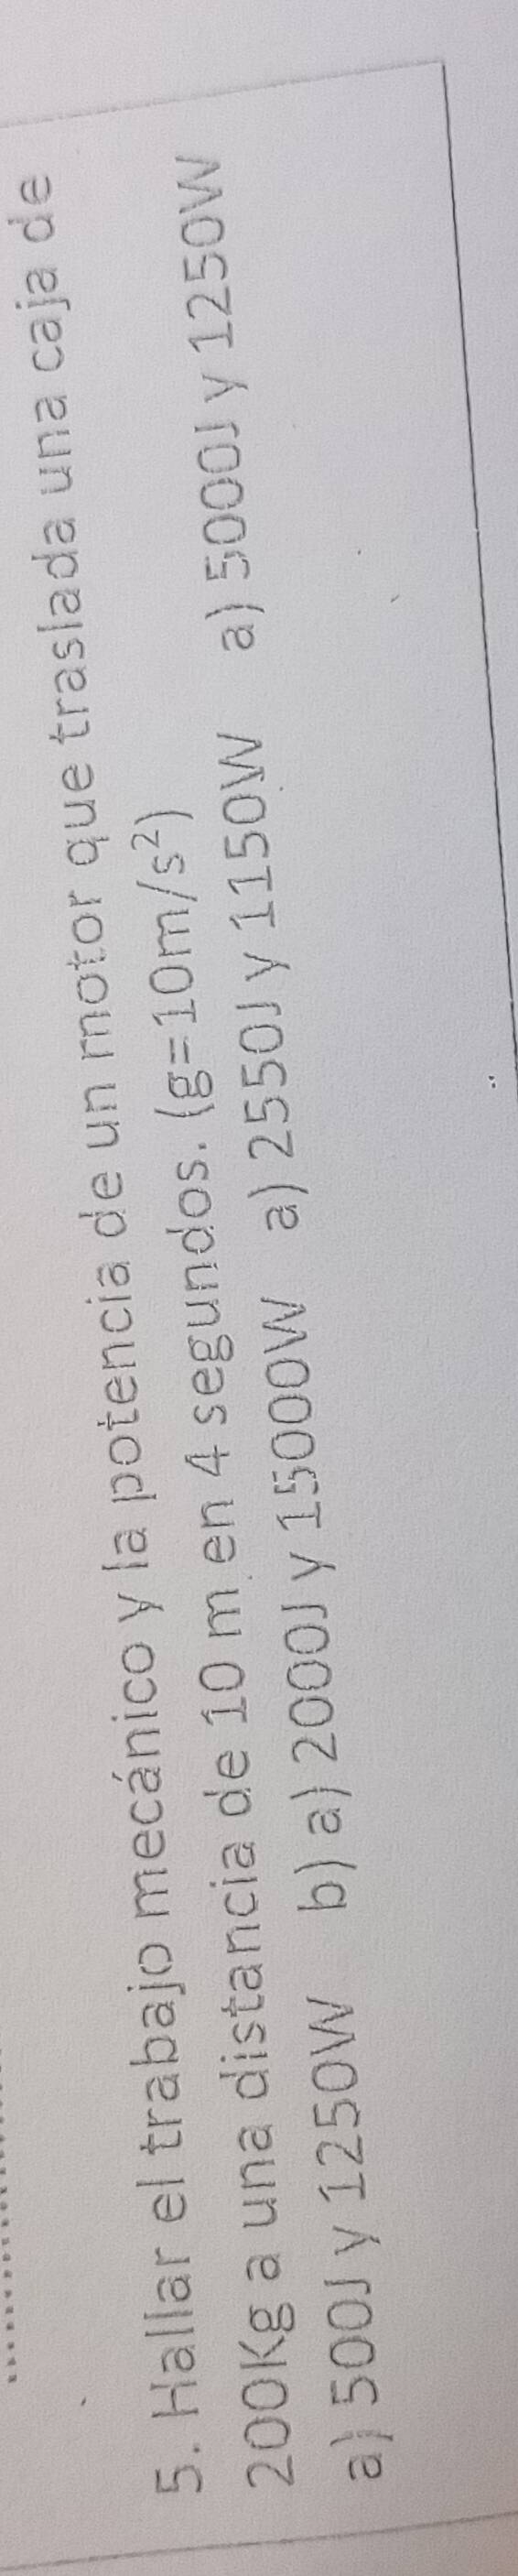 5. Hallar el trabajo mecánico y la potencia de un motor que traslada una caja de
200Kg a una distancia de 10 m en 4 segundos. (g=10m/s²)
a) 500J y 1250W b) a) 2000J y 15000W a) 2550J y 1150W a) 5000J y 1250W